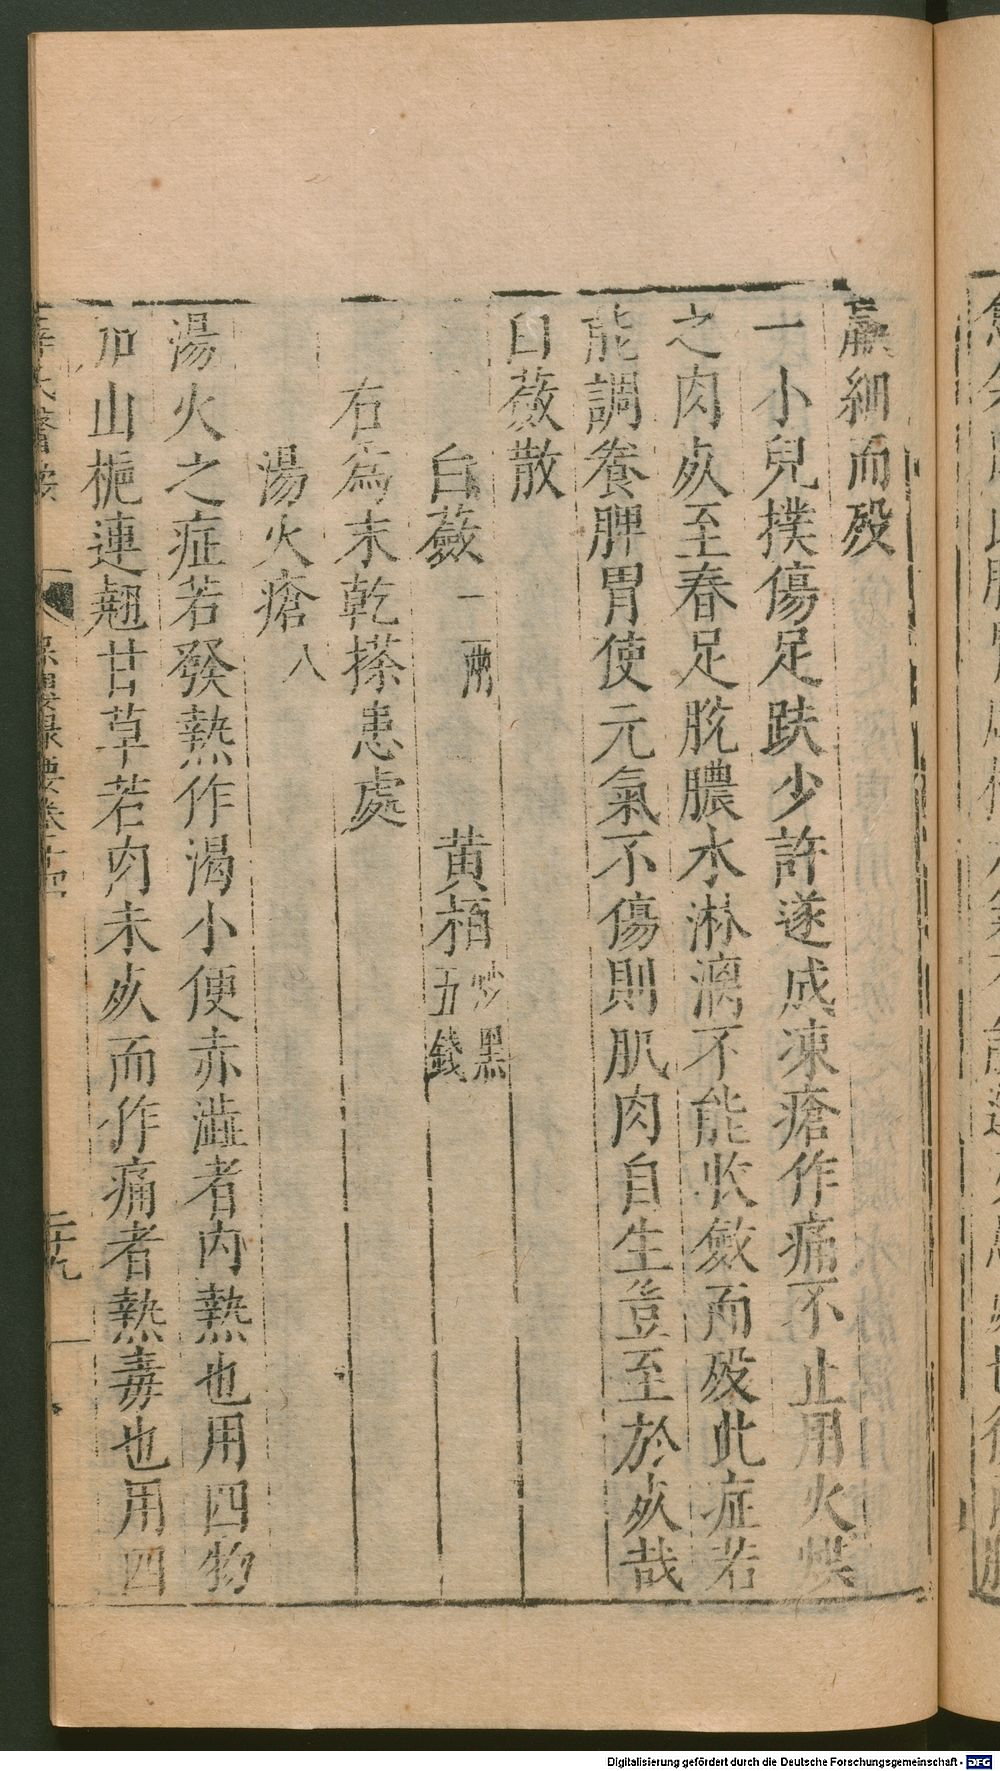 羸細而殁
一小兒撲傷足趺少許遂成凍瘡作痛不止用火烘
之肉死至春足脫膿水淋漓不能收斂而殁此症若
能調養脾胃使元氣不傷則肌肉自生豈至於死哉
白蘞散
白蘞一兩 黄栢炒黑五錢
右爲末乾搽患處
湯火瘡八
湯火之症若發熱作渴小便赤澁者内熱也用四物
加山梔連翹甘草若肉未死而作痛者熱毒也用四
薛氏醫按 保嬰撮要卷十四 二十九
Digitalisierung gefördert durch die Deutsche Forschungsgemeinschaft - DFG